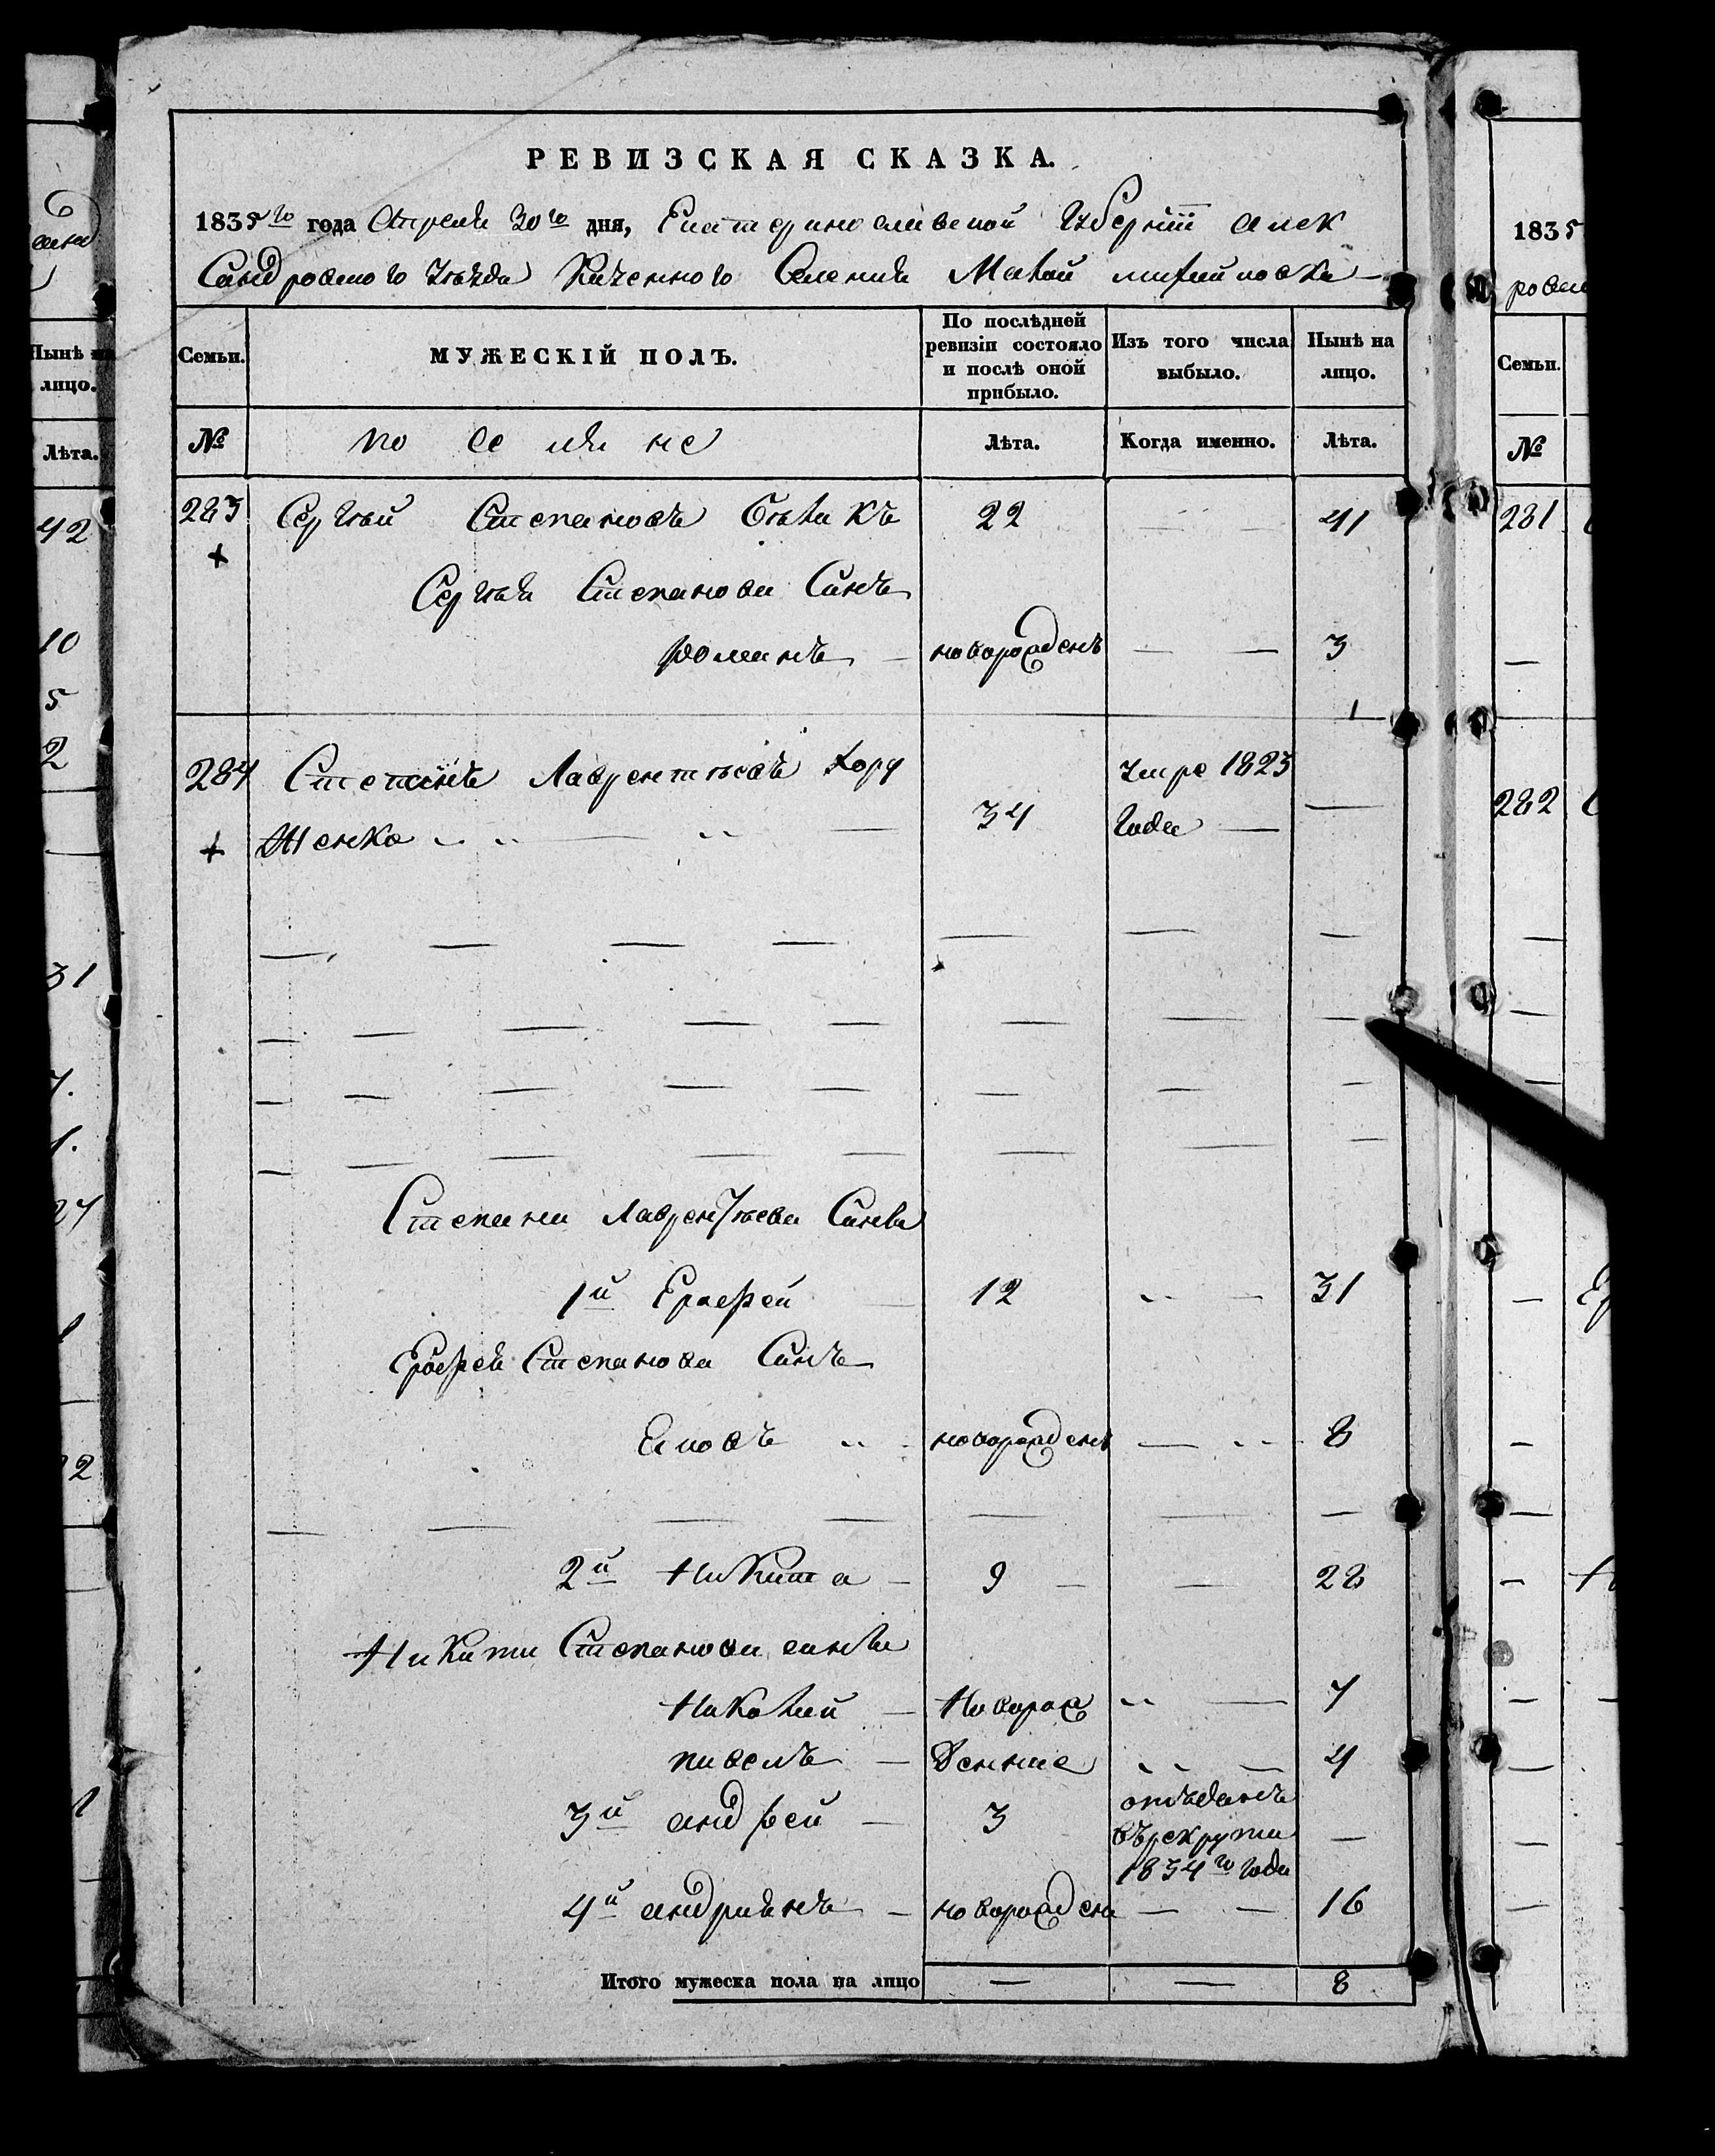 РЕВИЗСКАЯ СКАЗКА.
1835го года Апреля 30го дня, Екатеринославской Губернии алек
Сандровского Уезда Казенного Селения Малой михайловки
Семьи.
МУЖЕСКІЙ ПОЛЪ.
По послѣдней ревизіи состояло и послѣ оной прибыло.
Изъ того числа выбыло.
Нынѣ на лицо.
№
поселяне
Лѣта.
Когда именно.
Лѣта.
283 Сергѣй Степановъ 22 — — 41
Сергѣя Степанова Синъ
романъ — новорожденъ — — 3
284 Степанъ Лаврентьевъ Кор умре 1823
женко 34 года — —
Степана Лаврентьева Синви
1й Ерофей 12 — 31
Ерофея Степанова Синъ
новорожденъ — 8
2й Никита — 9 — — 28
Никити Степанова синви
Николай — Новорож — 7
павелъ —Денние — 4
3й андрей — 3 отъданъ —
въ рекрути
1834го года
4й андриянъ — новорожденъ — — 16
Итого мужеска пола на лицо — — 8
Нынѣ на лицо.
Лѣта.
42
10
5
2
31
1835
Семьи.
№
281
282